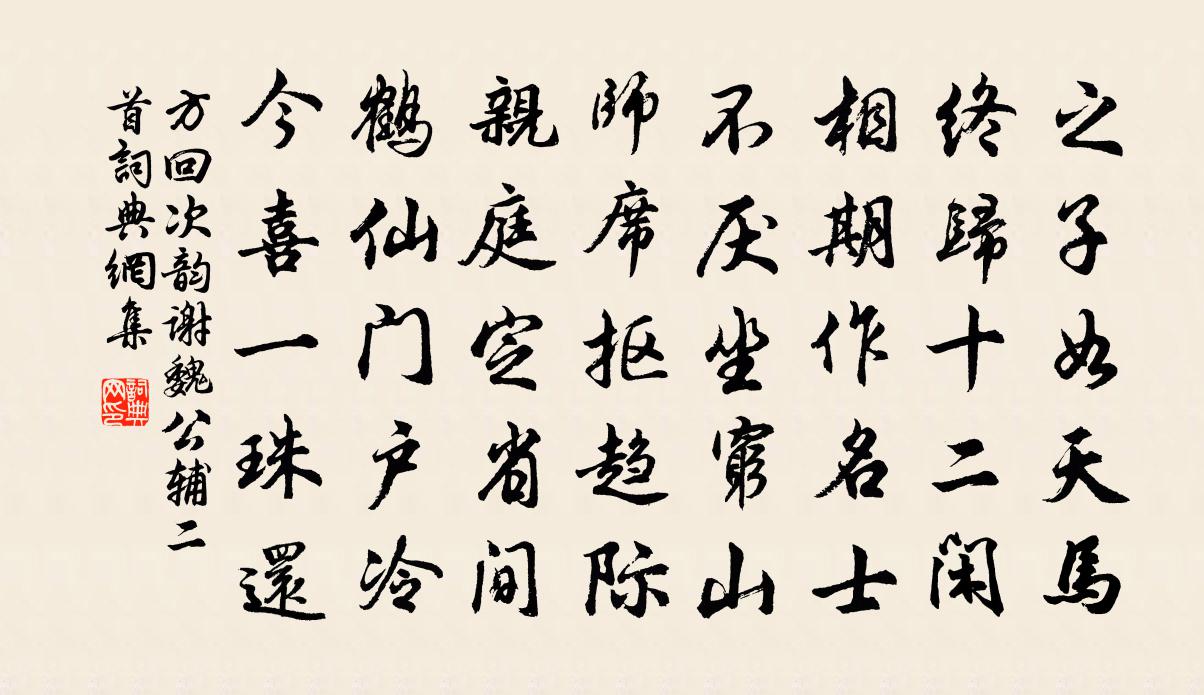 之子如天馬
終歸十二閑
相期作名士
不厌坐窮山
師席抠趋际
親庭定省间
鶴仙门户冷
今喜一珠還
方回次韵谢魏公辅二
首詞典網集
詞典
网印